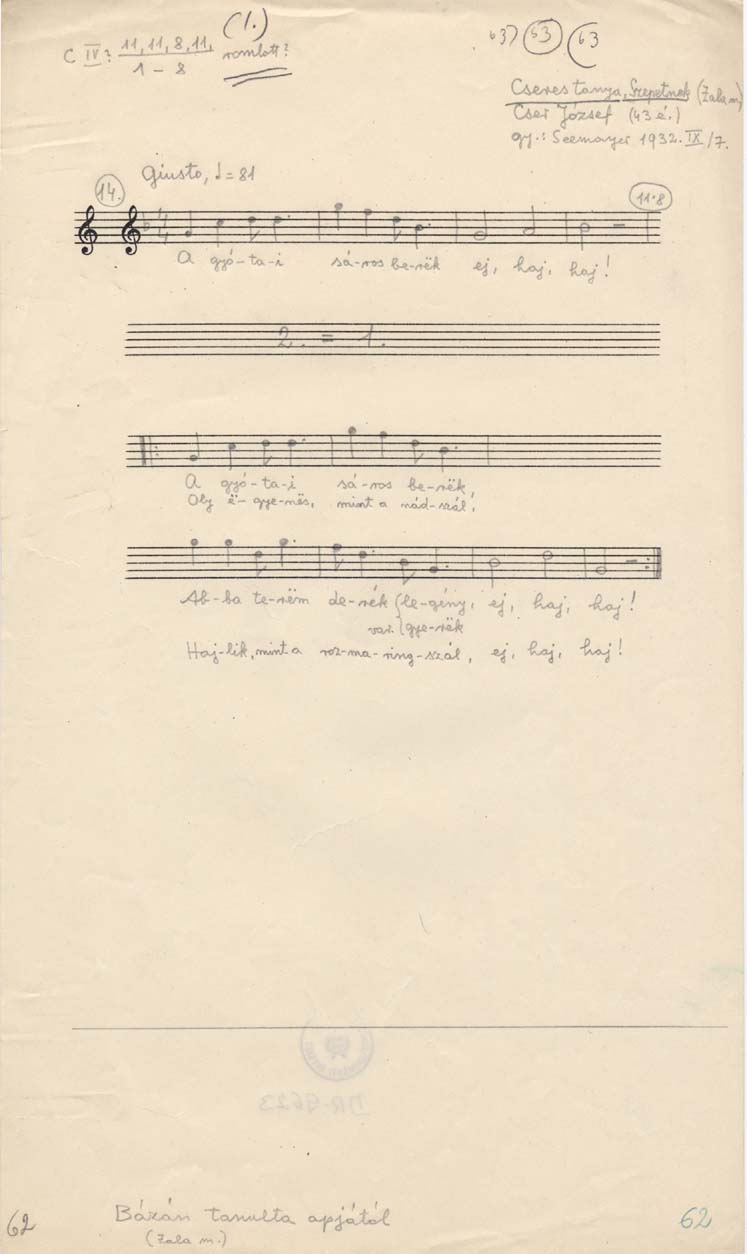 (1.)
C IV: 11, 11, 8, 11, romlott?
1 – 8
63) 63 63
Cseres tanya, Szepetnek (Zala m)
Cser József (43 é.)
gy.: Seemayer 1932. IX/7.
14.
Giusto, ♩= 81
11·8
4
4
A gyó-ta-i sá-ros be-rëk ej, haj, haj!
2. = 1.
A gyó-ta-i sá-ros be-rëk,
Oly ë-gye-nës, mint a nád-szál,
Ab-ba te-rëm de-rék {le-gény, ej, haj, haj!
var. {gye-rëk
Haj-lik, mint a roz-ma-ring-szál, ej, haj, haj!
62
Bázán tanulta apjától
(Zala m.)
62